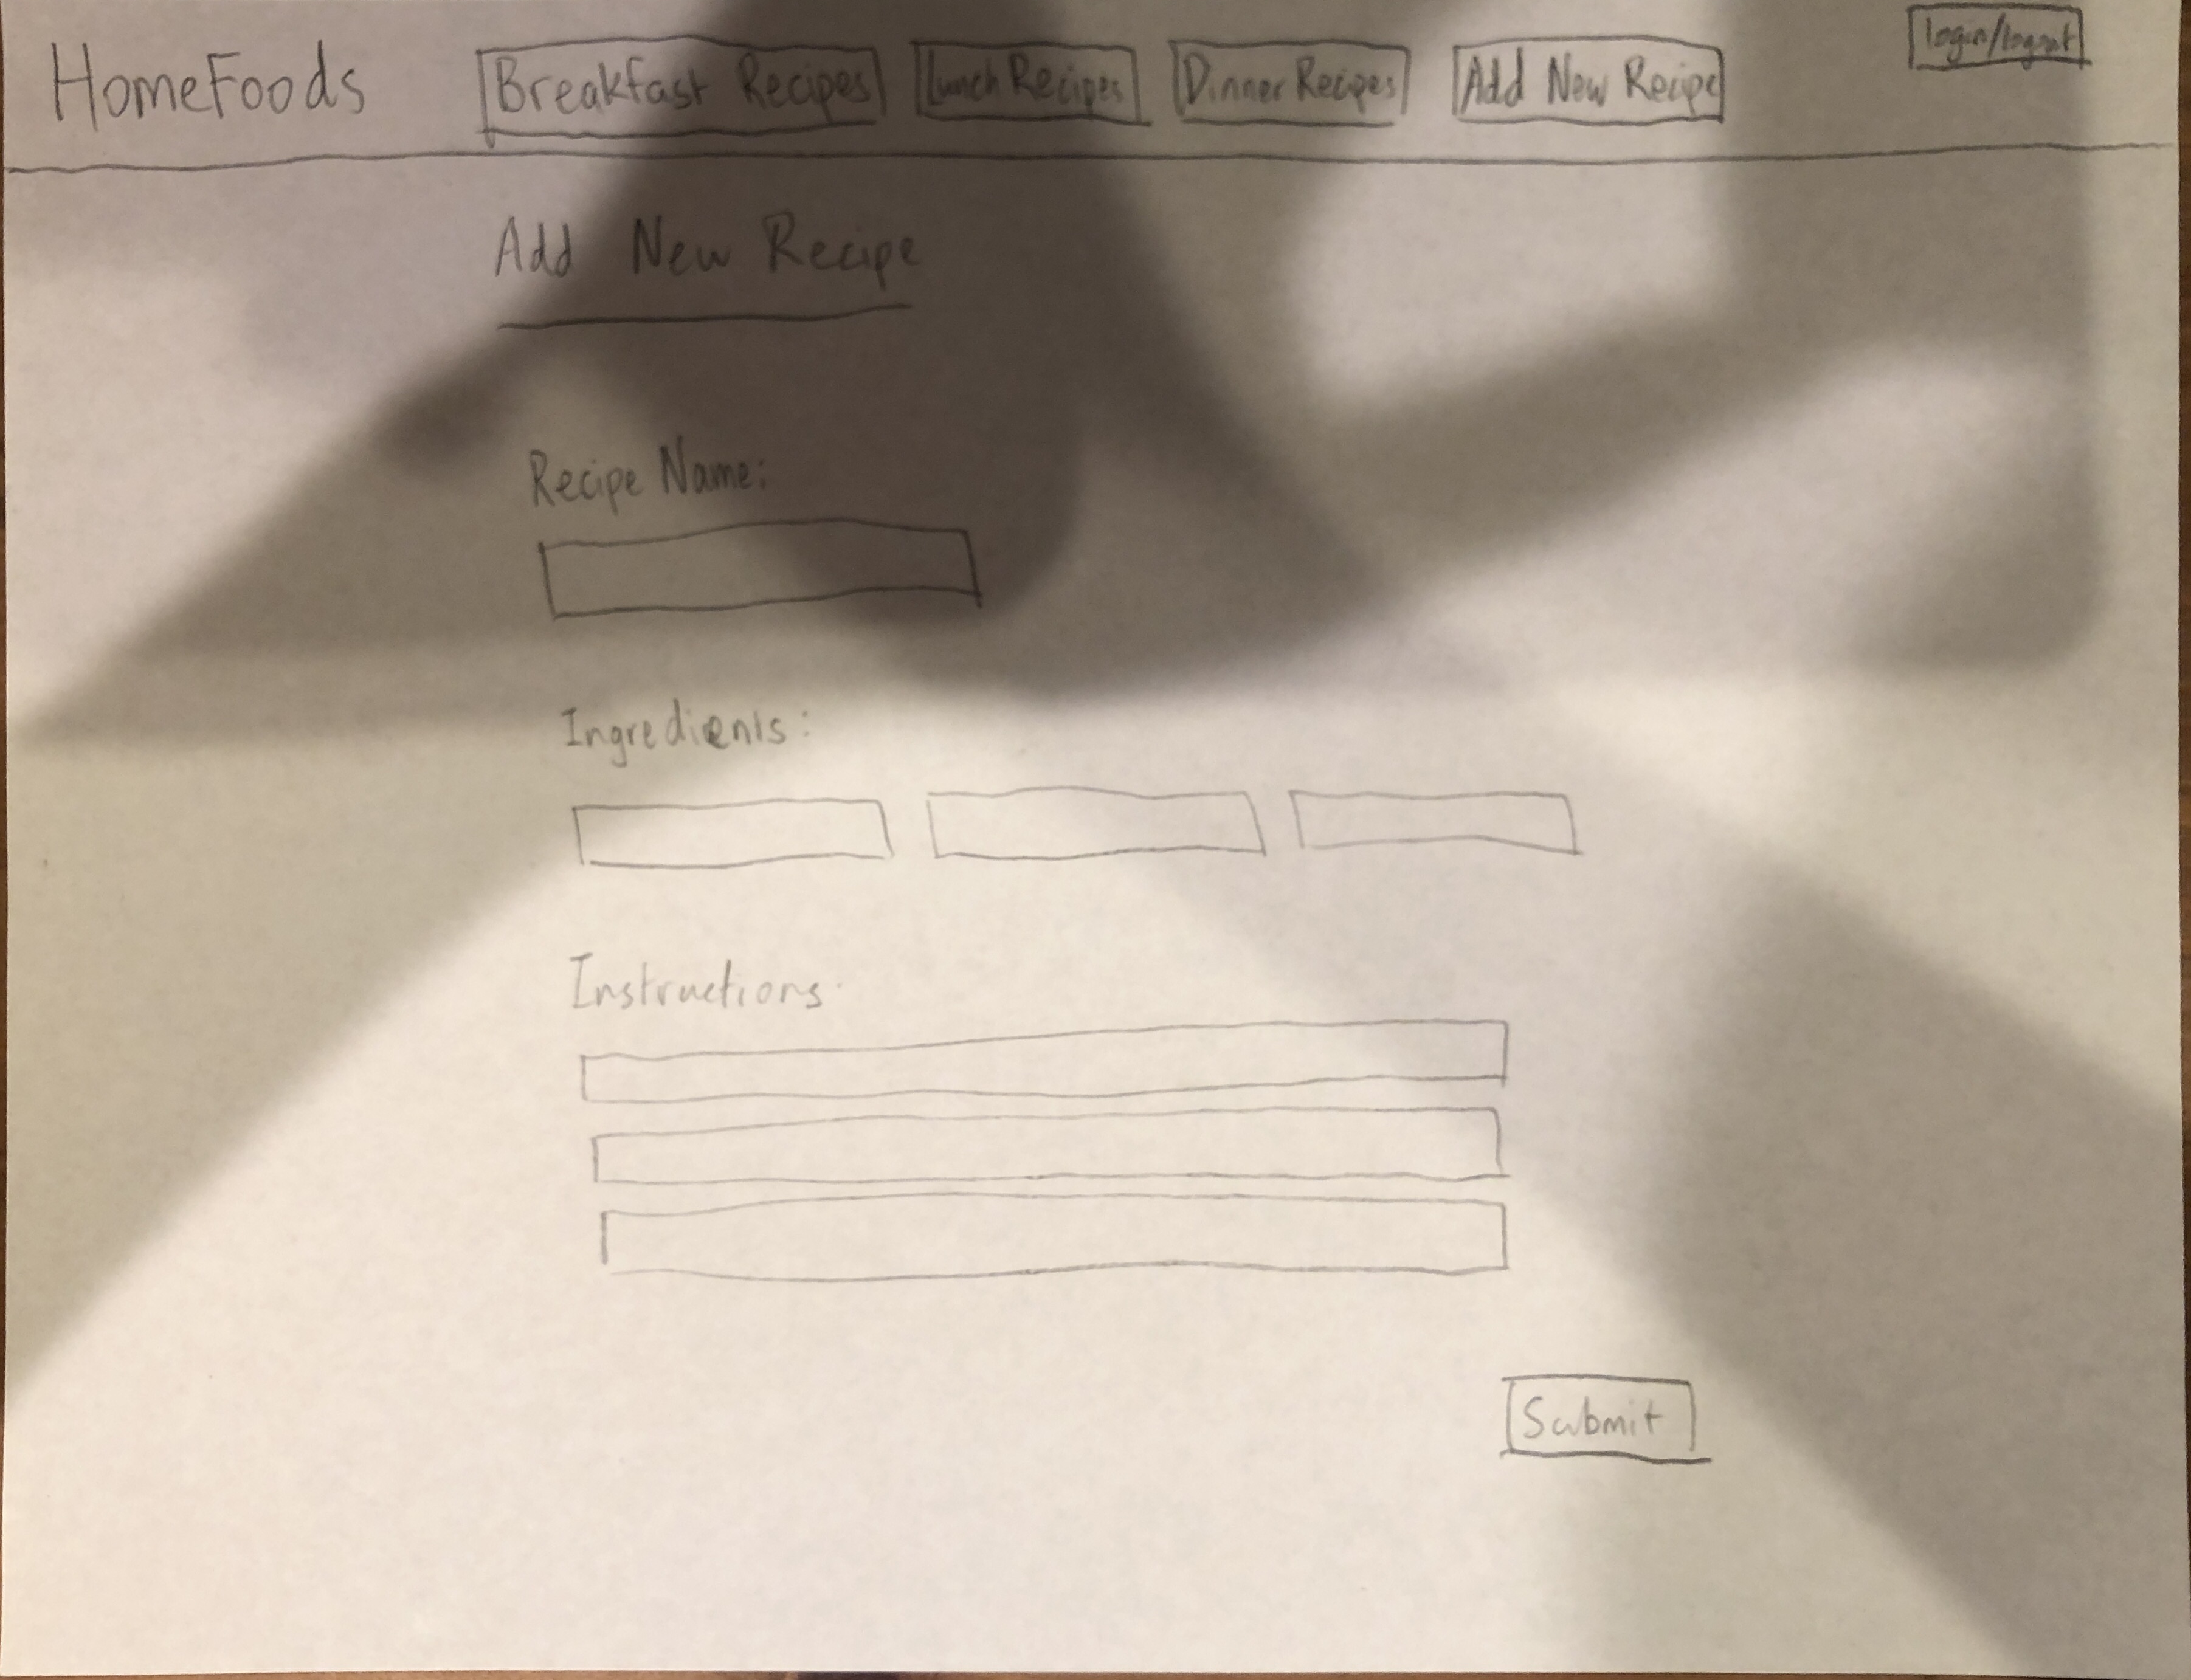 HomeFoods Breakfast Recipes Lunch Recipes Dinner Recipes Add New Recipe login/logout
Add New Recipe
Recipe Name:
Ingredients:
Instructions
Submit